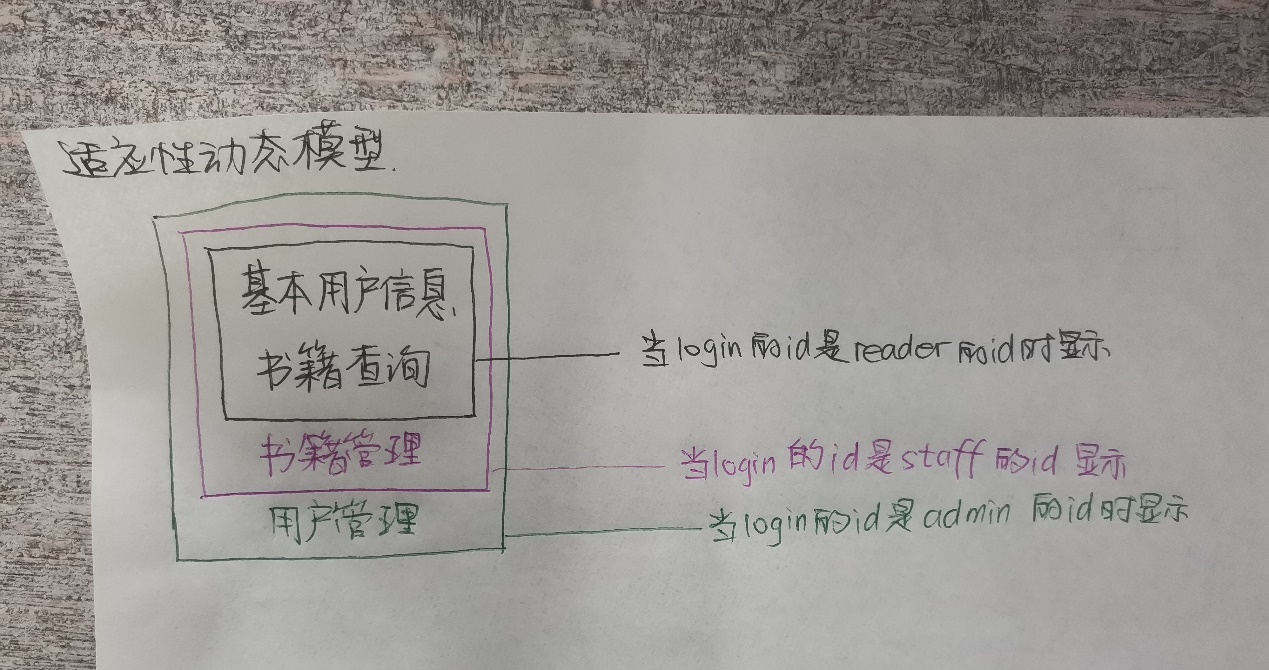 适应性动态模型.
基本用户信息.
书籍查询
当login的id是reader的id时显示
书籍管理
当login的id是staff的id 显示
用户管理
当login的id是admin 的id时显示